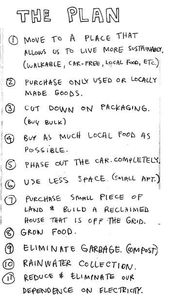 THE PLAN
① MOVE TO A PLACE THAT
ALLOWS US TO LIVE MORE SUSTAINABLY.
(WALKABLE, CAR-FREE, LOCAL FOOD, ETC.)
② PURCHASE ONLY USED OR LOCALLY
MADE GOODS.
③ CUT DOWN ON PACKAGING.
(BUY BULK)
④ BUY AS MUCH LOCAL FOOD AS
POSSIBLE.
⑤ PHASE OUT THE CAR. COMPLETELY.
⑥ USE LESS SPACE. (SMALL APT.)
⑦ PURCHASE SMALL PIECE OF
LAND & BUILD A RECLAIMED
HOUSE THAT IS OFF THE GRID.
⑧ GROW FOOD.
⑨ ELIMINATE GARBAGE. (COMPOST)
⑩ RAINWATER COLLECTION.
⑪ REDUCE & ELIMINATE OUR
DEPENDENCE ON ELECTRICITY.